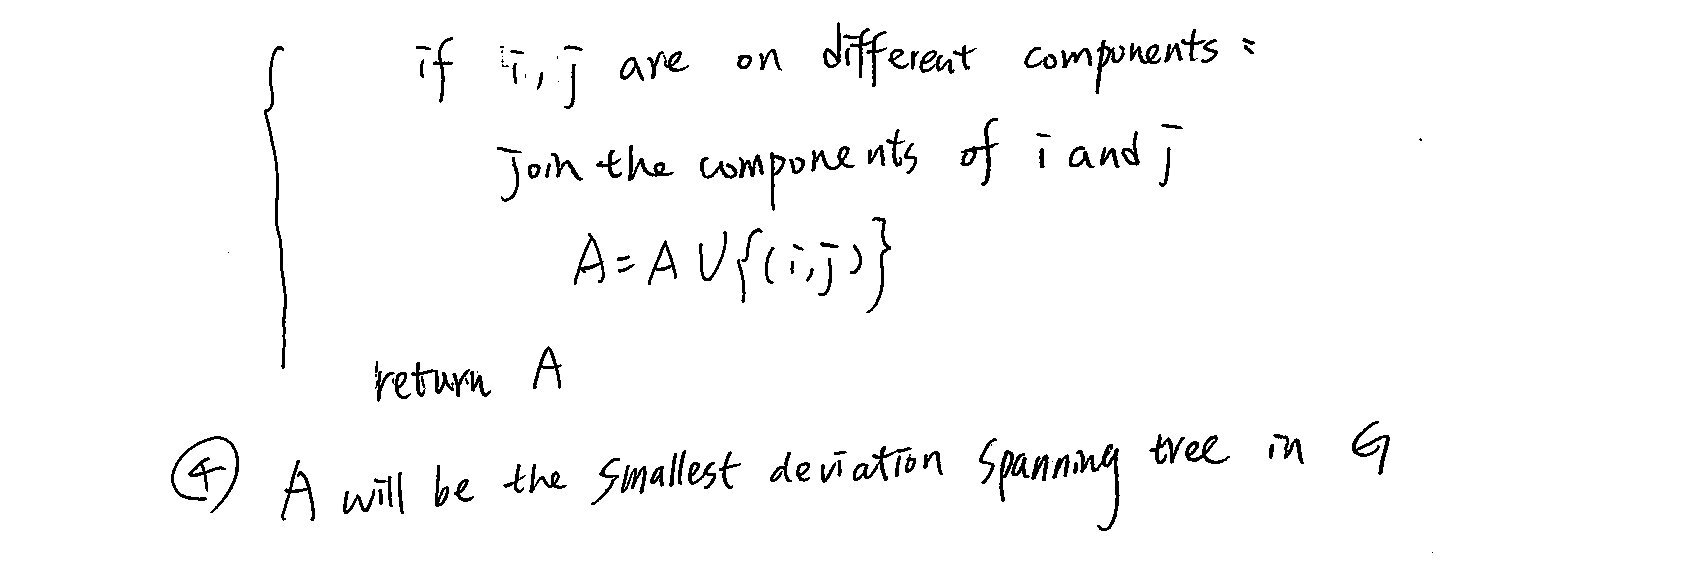 if i, j are on different components:
join the components of i and j
A = A ∪ {(i,j)}
return A
④ A will be the smallest deviation spanning tree in G